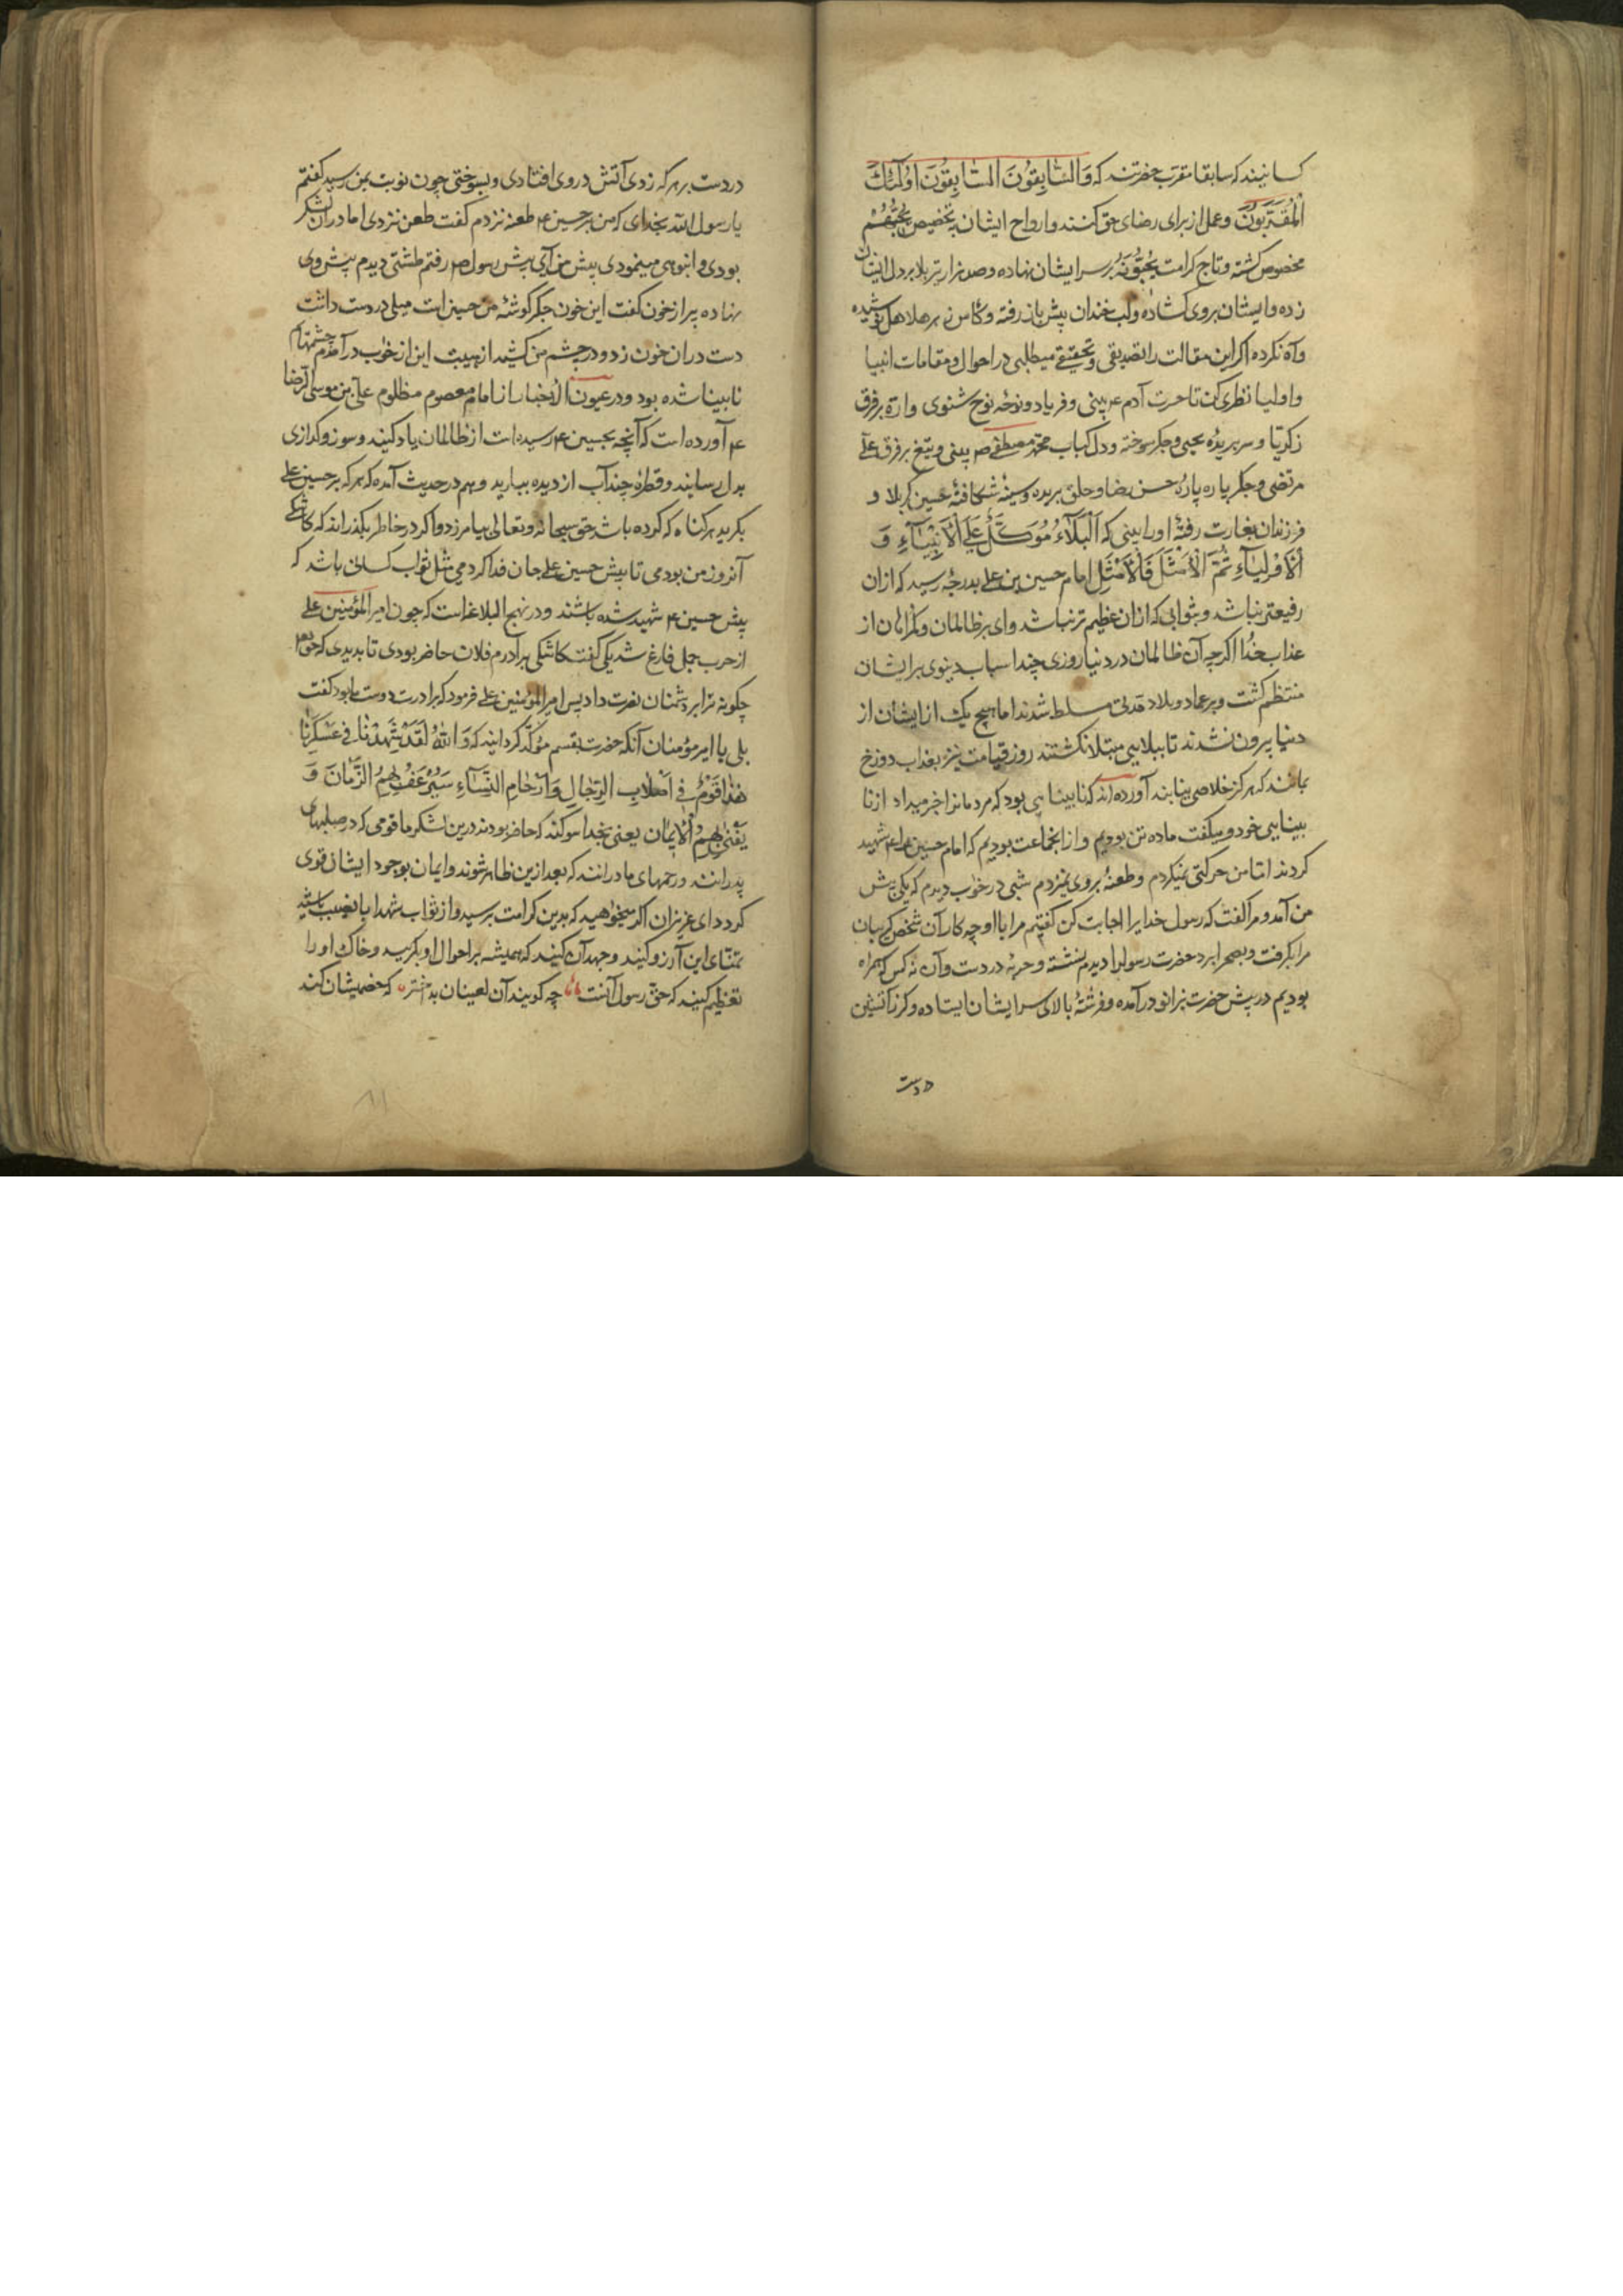 کسانیند که سابقا مقرب حضرتند که وَالسَّابِقُونَ السَّابِقُونَ اُولٰٓئِكَ
الْمُقَرَّبُونَ وعمل از برای رضای حق کنند وارواح ایشان بتخصیص یُحِبُّهُمْ
مخصوص کشته وتاج کرامت یُحِبُّونَهُ بر سر ایشان نهاده وصد هزار تیر بلا بر دل ایشان
زده وایشان بروی کشاده ولب خندان پیش باز رفته وکاس زهر هلاهل نوشیده
وآه نکرده اکر این مقالت را تصدیقی وتحقیقی میطلبی در احوال ومقامات انبیا
واولیا نظری کن تا حسرت آدم ع بینی وفریاد ونوحه نوح شنوی واره بر فرق
زکریا وسر بریدهٔ یحیی وجکر سوخته ودل کباب محمد مصطفی ص بینی وتیغ بر فرق علی
مرتضی وجکر پاره پارهٔ حسن رضا وحلق بریده وسینهٔ شکافتهٔ حسین کربلا و
فرزندان بغارت رفتهٔ اورا بینی که اَلْبَلَآءُ مُوَكَّلٌ عَلَی الْاَنْبِیَآءِ وَ
الْاَوْلِیَآءِ ثُمَّ الْاَمْثَلَ فَالْاَمْثَلِ امام حسین بن علی بدرجهٔ رسید که ازان
رفیعتر نباشد وبثوابی که ازان عظیم تر نباشد وای بر ظالمان وکمراهان از
عذاب خدا اکرچه آن ظالمان در دنیا روزی چند اسباب دنیوی بر ایشان
منتظم کشت وبر عماد وبلاد مدتی مسلط شدند اما هیچ یک از ایشان از
دنیا بیرون نشدند تا ببلایی مبتلا نکشتند روز قیامت نیز بعذاب دوزخ
بمانند که هرکز خلاصی نیابند آورده اند که نابینایی بود که مردمانرا خبر میداد از نا
بینایی خود ومیکفت ما ده تن بودیم واز انجماعت بودیم که امام حسین را ع شهید
کردند اما من حرکتی نمیکردم وطعنهٔ بروی نمیزدم شبی در خواب دیدم که یکی پیش
من آمد ومرا کفت که رسول خدایرا اجابت کن کفتم مرا با او چه کار آن شخص کریبان
مرا بکرفت وبصحرا برد حضرت رسولرا دیدم نشسته وحربهٔ در دست وآن نه کس که همراه
بودیم در پیش حضرت بزانو درآمده وفرشتهٔ بالای سر ایشان ایستاده وکرز آتشین
در دست
در دست بر هر که زدی آتش در وی افتادی وبسوختی چون نوبت بمن رسید کفتم
یا رسول الله بخدای که من بر حسین ع طعنه نزدم کفت طعن نزدی اما در آن لشکر
بودی وانبوهی مینمودی پیش من آی پیش رسول ص رفتم طشتی دیدم پیش وی
نهاده پر از خون کفت این خون جکر کوشهٔ من حسین است میلی در دست داشت
دست در ان خون زد ودر چشم من کشید از هیبت این از خواب درآمدم چشمهام
نابینا شده بود ودر عیون الاخبار از امام معصوم مظلوم علی بن موسی الرضا
ع آورده است که آنچه بحسین ع رسیده است از ظالمان یاد کنید وسوز وکدازی
بدل رسانید وقطرهٔ چند آب از دیده ببارید وهم در حدیث آمده که هر که بر حسین علی
بکرید هر کناه که کرده باشد حق سبحانه وتعالی بیامرزد واکر در خاطر بکذراند که کاشکی
آنروز من بودمی تا پیش حسین علی جان فدا کردمی مثل ثواب کسانی باشد که
پیش حسین ع شهید شده باشند ودر نهج البلاغه است که چون امیر المؤمنین علی
از حرب جمل فارغ شد یکی کفت کاشکی برادرم فلان حاضر بودی تا بدیدی که حق تعالی
چکونه ترا بر دشمنان نصرت داد پس امیر المؤمنین علی فرمود که برادرت دوست ما بود کفت
بلی یا امیر مؤمنان آنکه حضرت بقسم مؤکد کردانید که وَاللهُ لَقَدْ شَهِدْنَا فِی عَسْكَرِنَا
هٰذَا قَوْمٌ فِی اَصْلَابِ الرِّجَالِ وَاَرْحَامِ النِّسَآءِ سَیَرْعَفُ بِهِمُ الزَّمَانَ وَ
یَقْوٰی بِهِمُ الْاِیمَان یعنی بخدا سوکند که حاضر بودند درین لشکر ما قومی که در صلبهای
پدرانند ورحمهای مادرانند که بعد ازین ظاهر شوند وایمان بوجود ایشان قوی
کردد ای عزیزان اکر میخواهید که بدین کرامت برسید واز ثواب شهدا با نصیب باشید
تمنای این آرزو کنید وجهد آن کنید که همیشه بر احوال او بکریید وخاک اورا
تعظیم کنید که حق رسول آنست چه کویند آن لعینان بد اختر که خصمیشان کند